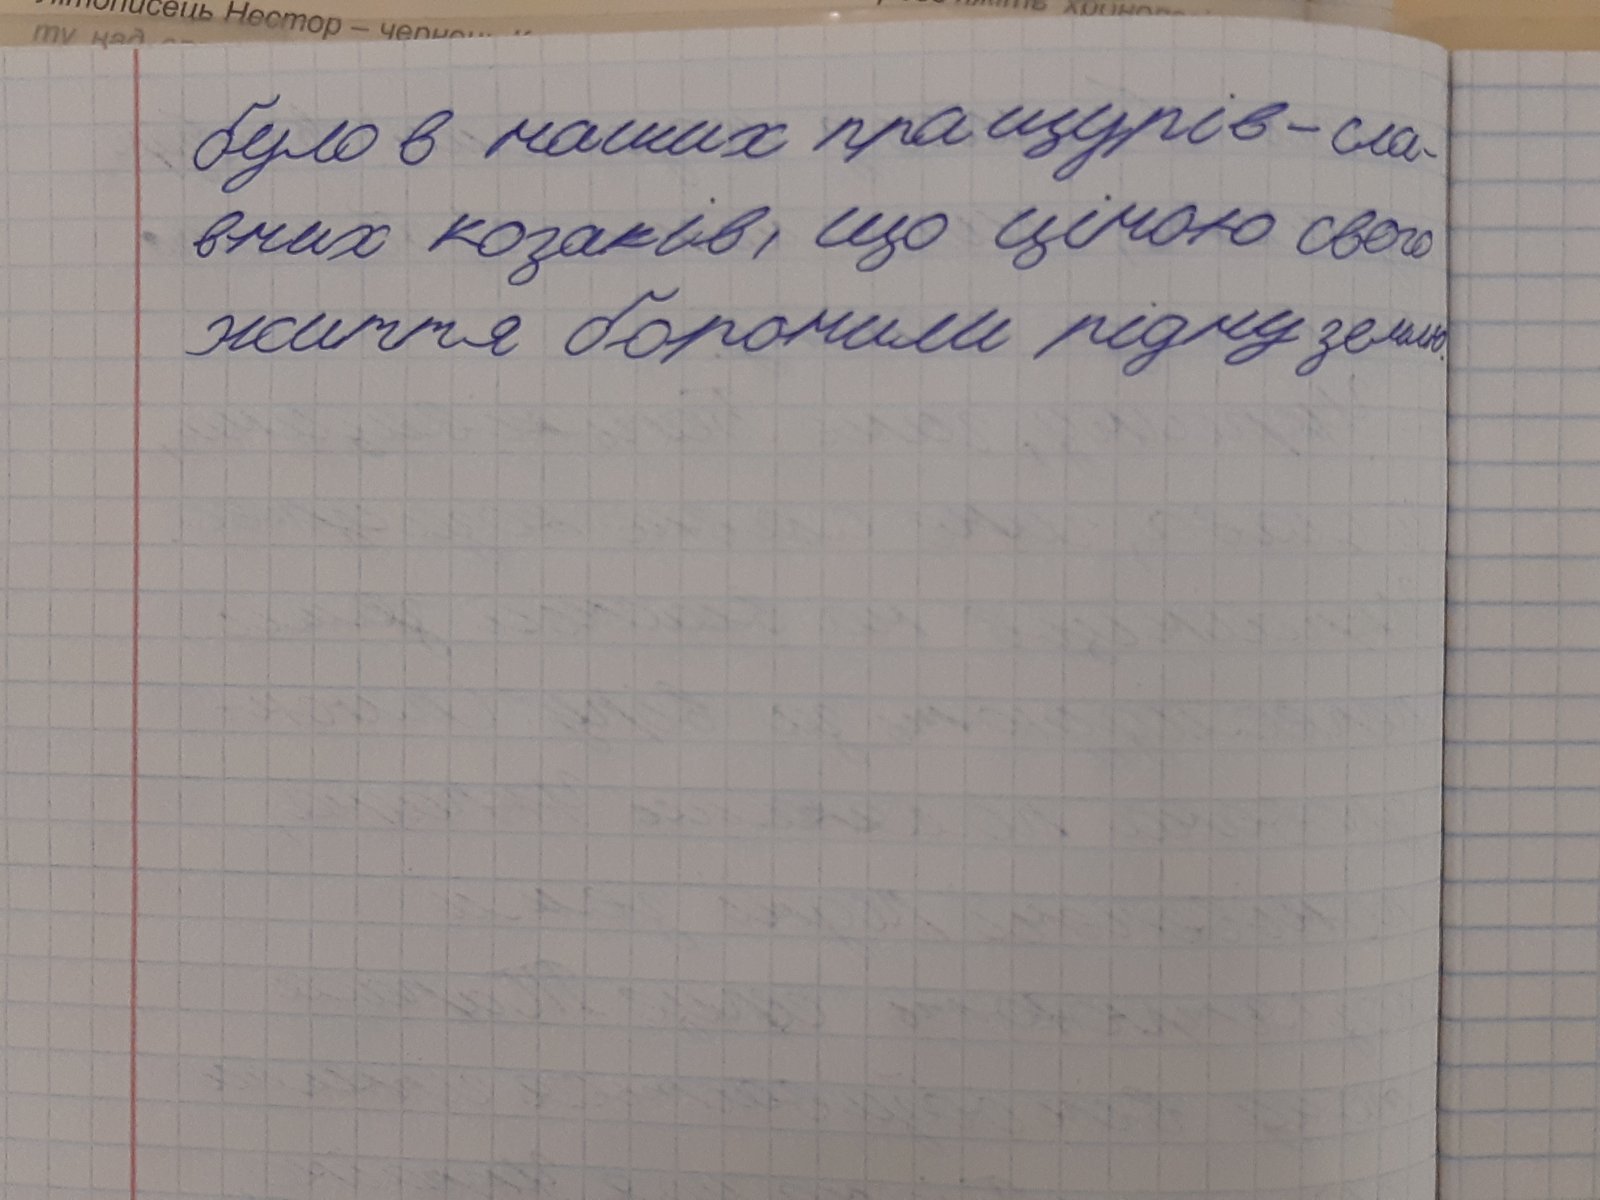 літописець Нестор – чернець
ту над
було в наших пращурів – сла-
вних козаків, що ціною свого
життя боронили рідну землю.